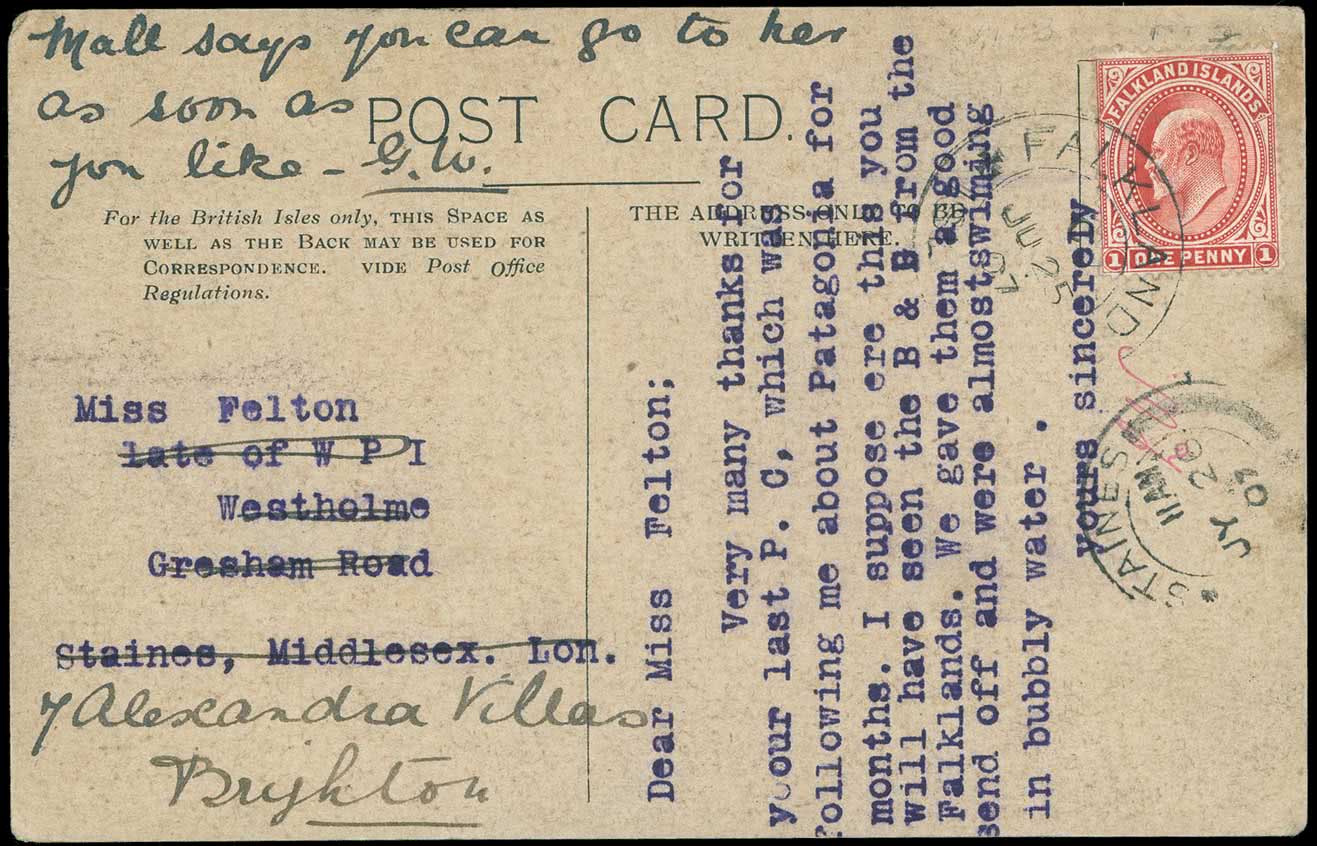 Mall says you can go to her
as soon as
you like - G.W.
POST CARD.
For the British Isles only, THIS SPACE AS
WELL AS THE BACK MAY BE USED FOR
CORRESPONDENCE. VIDE Post Office
Regulations.
THE ADDRESS ONLY TO BE
WRITTEN HERE.
FALKLAND ISLANDS
1 ONE PENNY 1
FALKLAND
JU 25
07
STAINES
11 AM
JY 26
07
Miss Felton
late of W P I
Westholme
Gresham Road
Staines, Middlesex. Lon.
7 Alexandra Villas
Brighton
Dear Miss Felton;
Very many thanks for
your last P. C, which was
following me about Patagonia for
months. I suppose ere this you
will have seen the B & B from the
Falklands. We gave them a good
send off and were almostswiming
in bubbly water .
yours sincerely